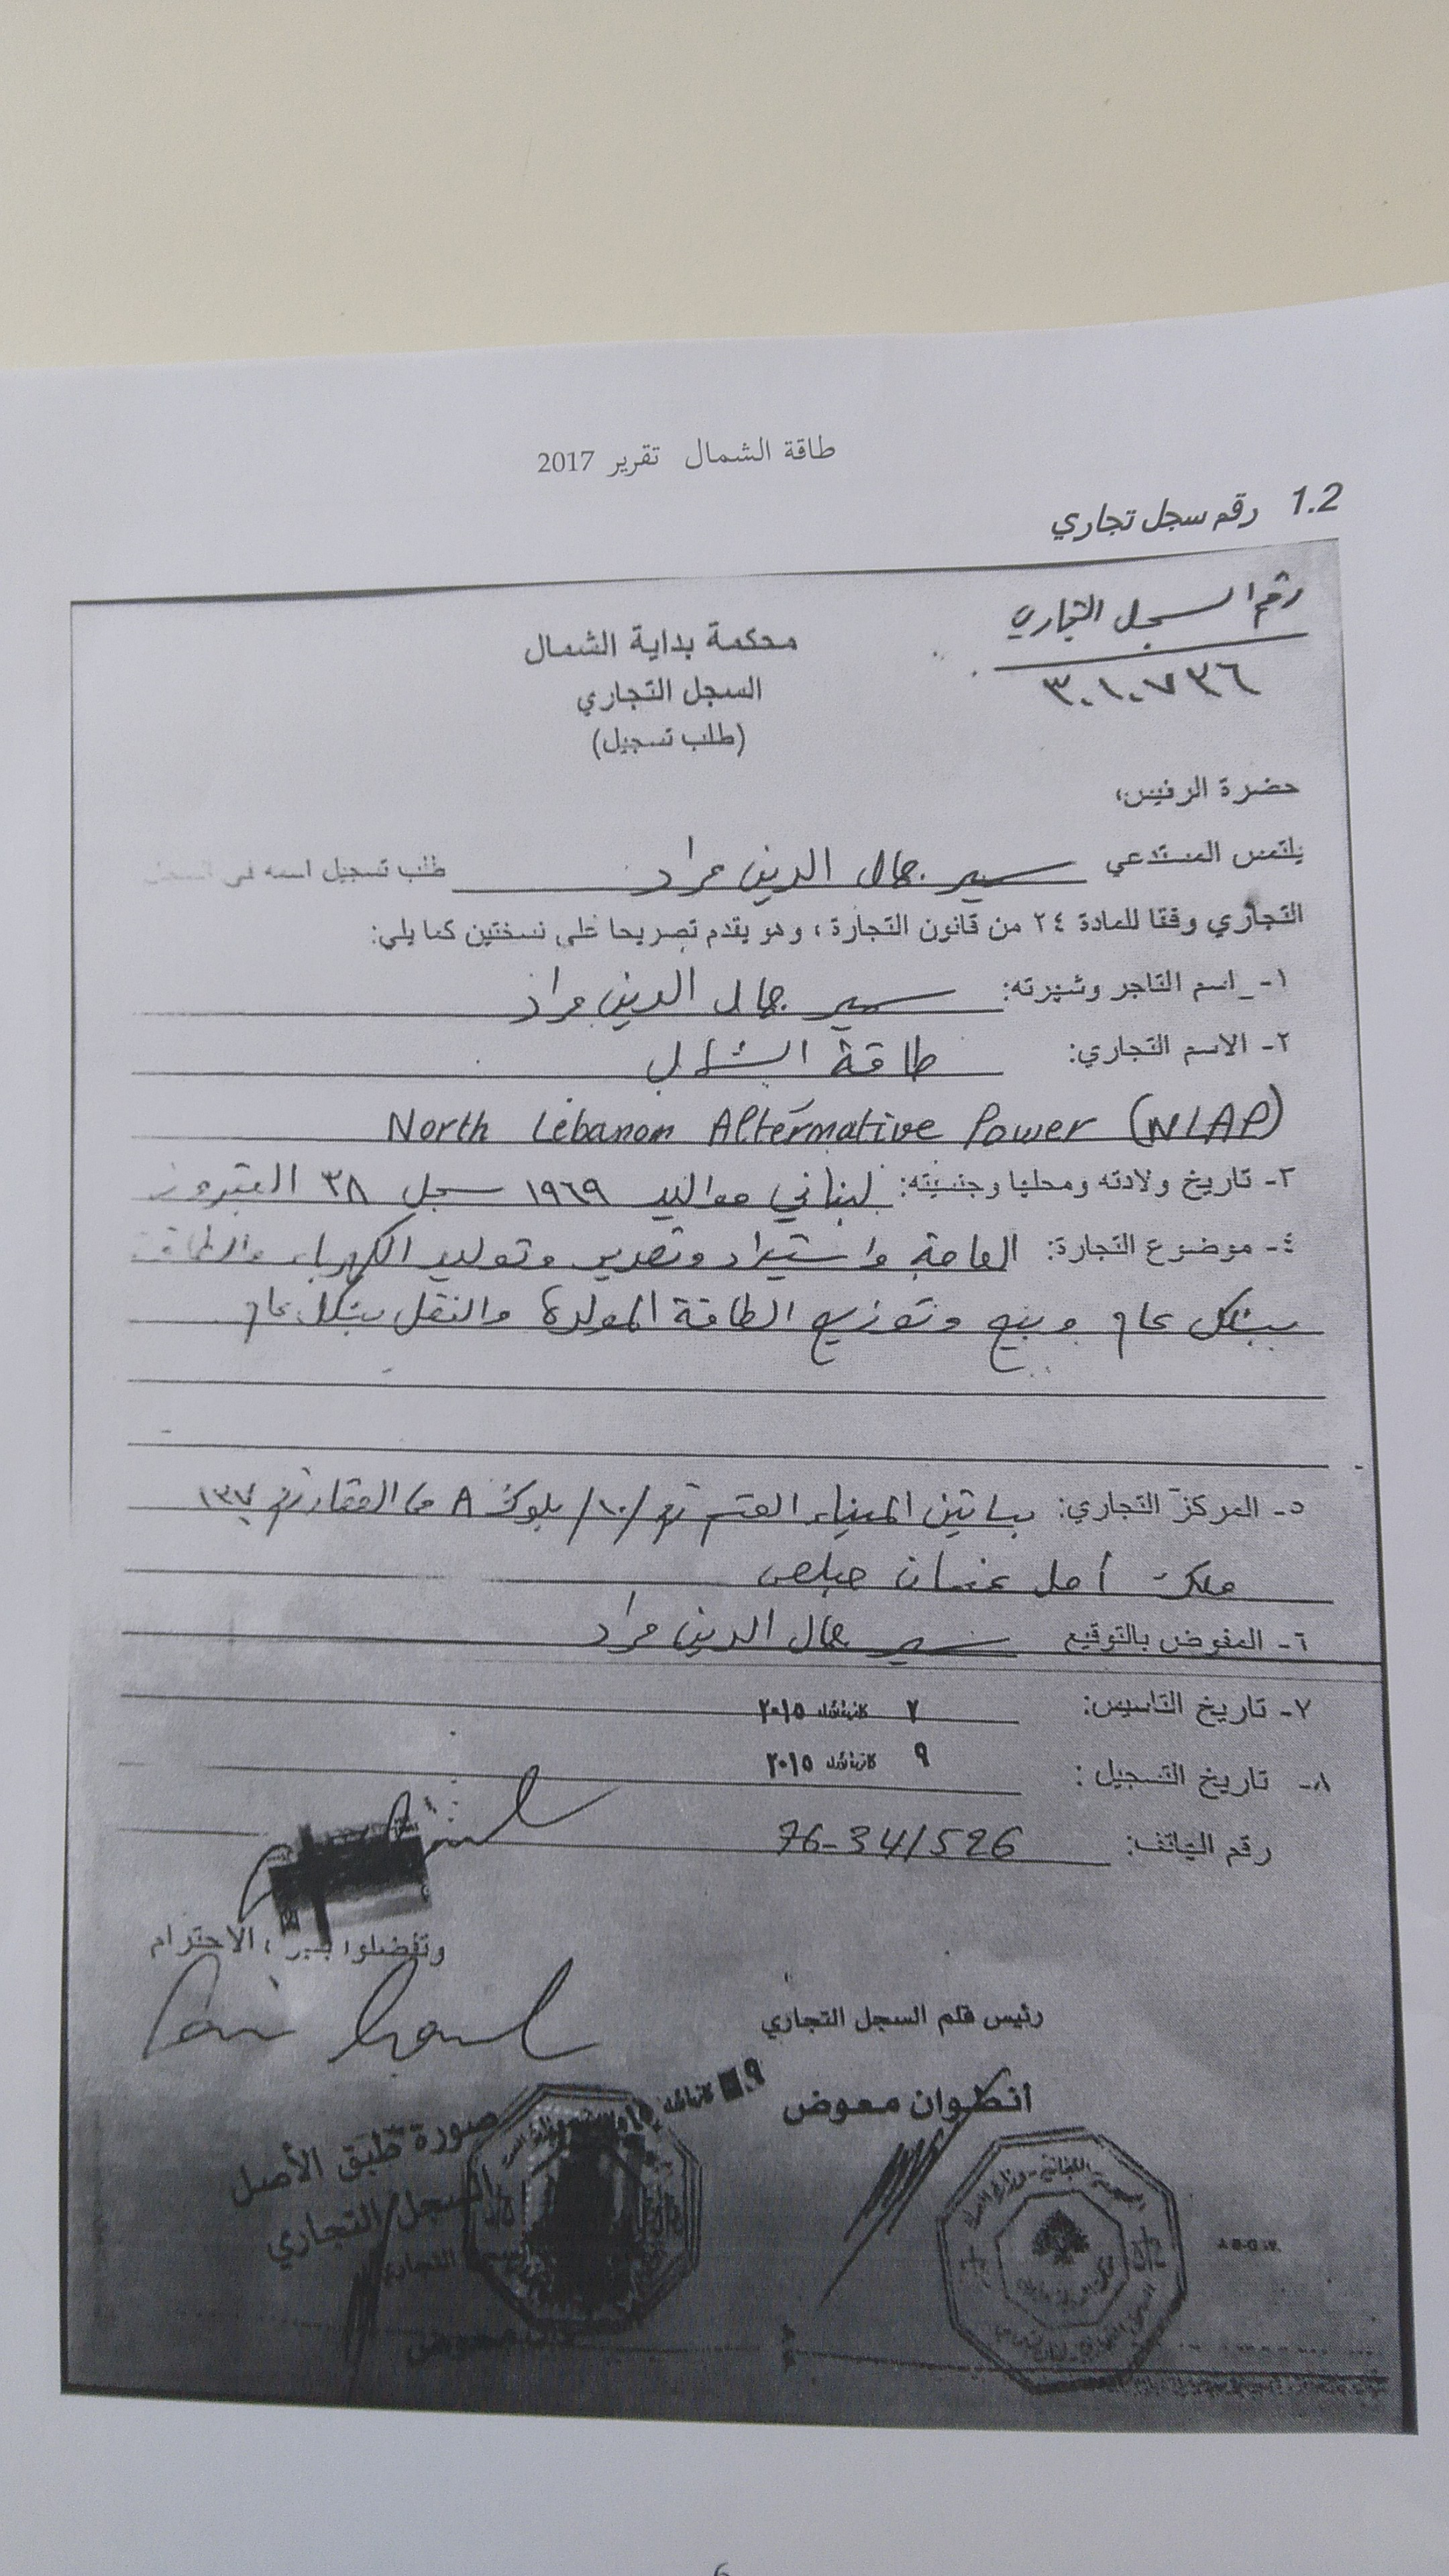 طاقة الشمال تقرير 2017
1.2 رقم سجل تجاري
رقم السجل التجاري
٣٠١٠٧٣٦
محكمة بداية الشمال
السجل التجاري
(طلب تسجيل)
حضرة الرئيس،
يلتمس المستدعي سمير جمال الدين مراد طلب تسجيل اسمه في السجل
التجاري وفقا للمادة ٢٤ من قانون التجارة ، وهو يقدم تصريحا على نسختين كما يلي:
١- اسم التاجر وشهرته: سمير جمال الدين مراد
٢- الاسم التجاري: طاقة الشمال
North Lebanon Alternative Power (NLAP)
٣- تاريخ ولادته ومحليا وجنسيته: لبناني مواليد ١٩٦٩ سجل ٣٨
٤- موضوع التجارة: العامة واستيراد وتصدير وتوليد الكهرباء والطاقة
بشكل عام وبيع وتوزيع الطاقة المولدة والنقل بشكل عام
٥- المركز التجاري: بساتين الميناء القسم رقم /١٠/ بلوك A من العقار رقم ١٣٧
ملك أمل غسان
٦- المفوض بالتوقيع سمير جمال الدين مراد
٧- تاريخ التاسيس: ٢ كانون الأول ٢٠١٥
٨- تاريخ التسجيل : ٩ كانون الأول ٢٠١٥
رقم الهاتف: 76-341526
وتفضلوا الاحترام
رئيس قلم السجل التجاري
انطوان معوض
صورة طبق الأصل
السجل التجاري
6